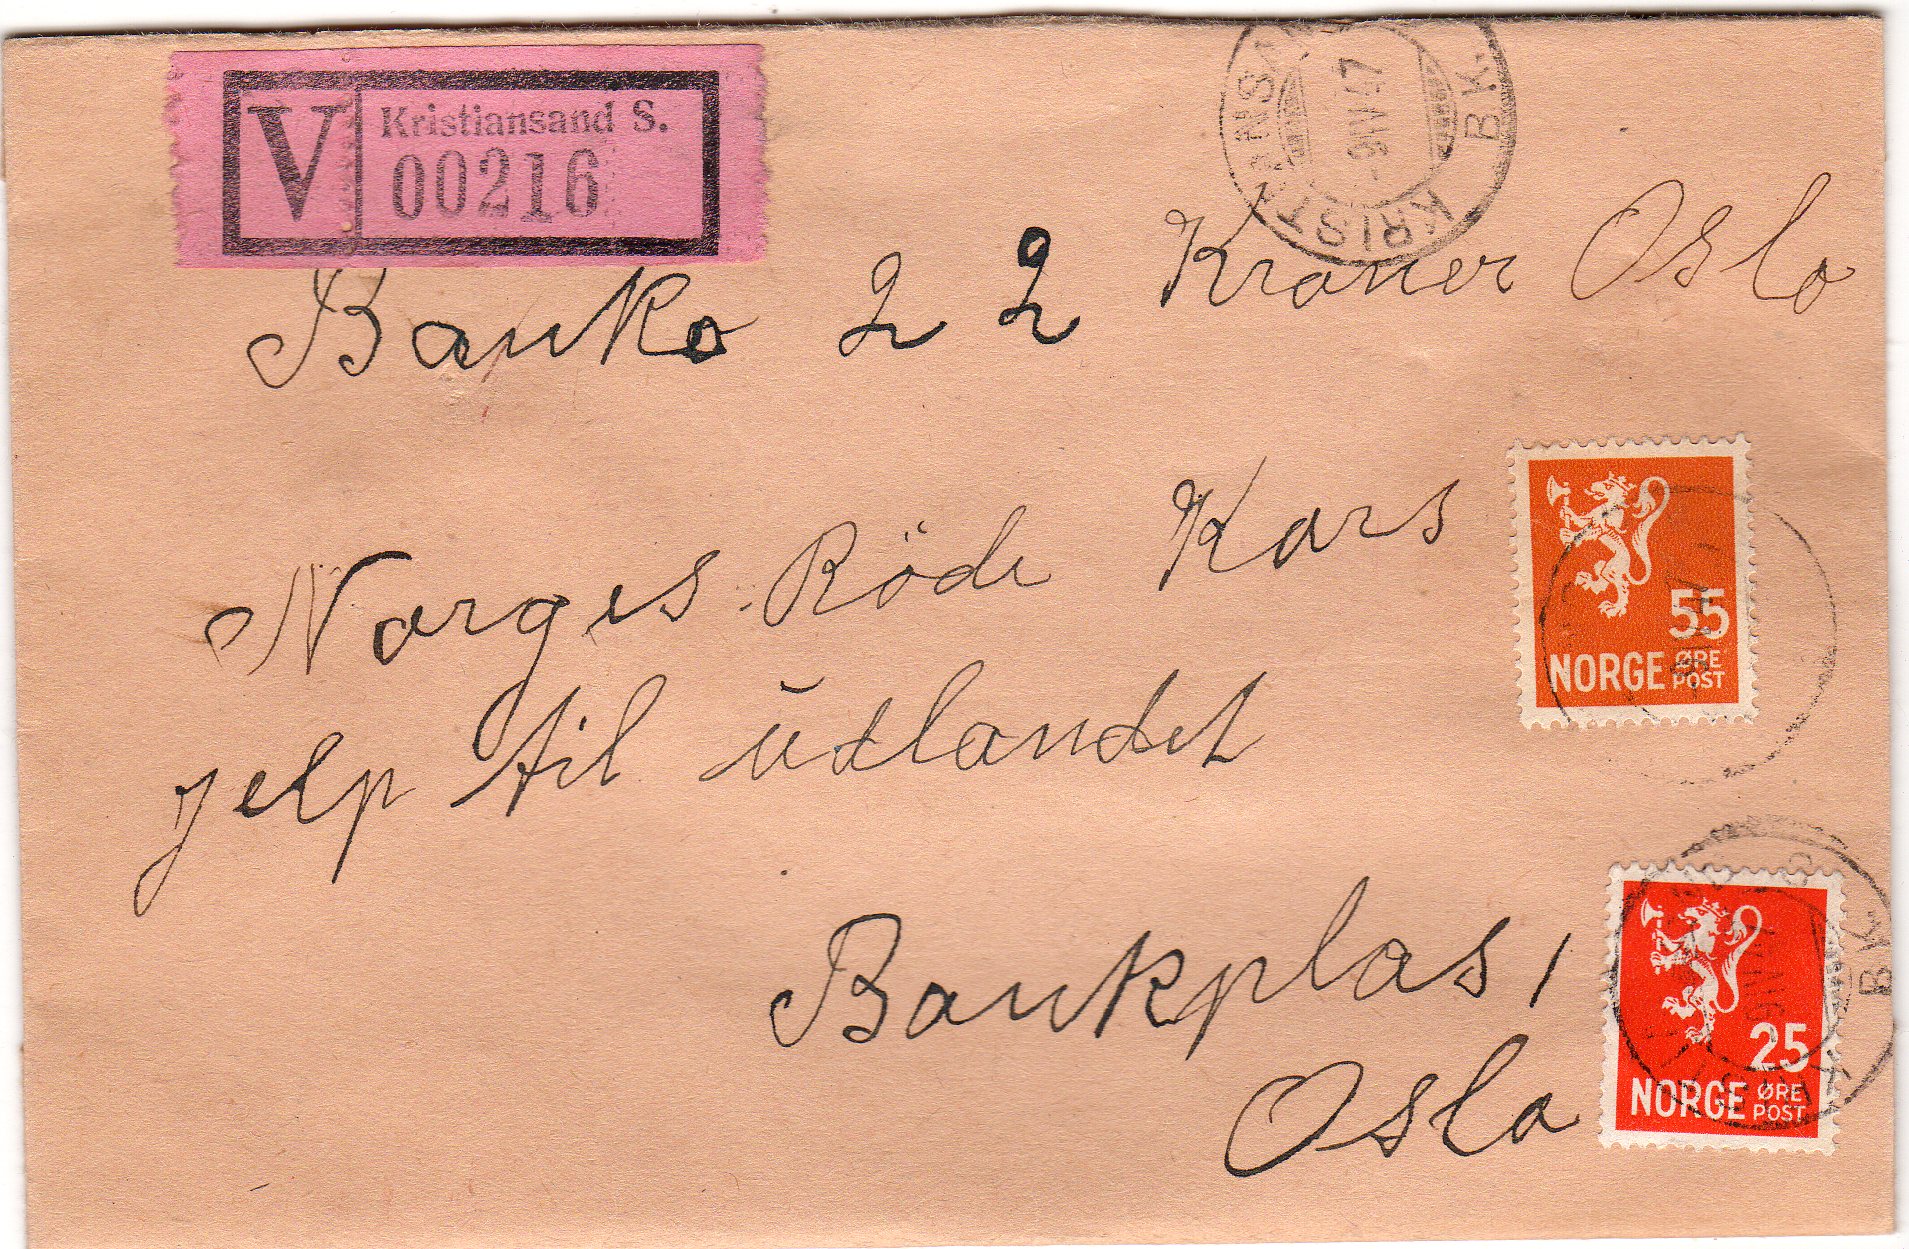 V Kristiansand S.
00216
KRISTIANSAN
BK.
-9 IV 47
Banko 22 Kroner Oslo
Norges Röde Kors
jelp til ŭtlandet
Bankplas 1
Oslo
55
NORGE ØRE
POST
25
NORGE ØRE
POST
BK